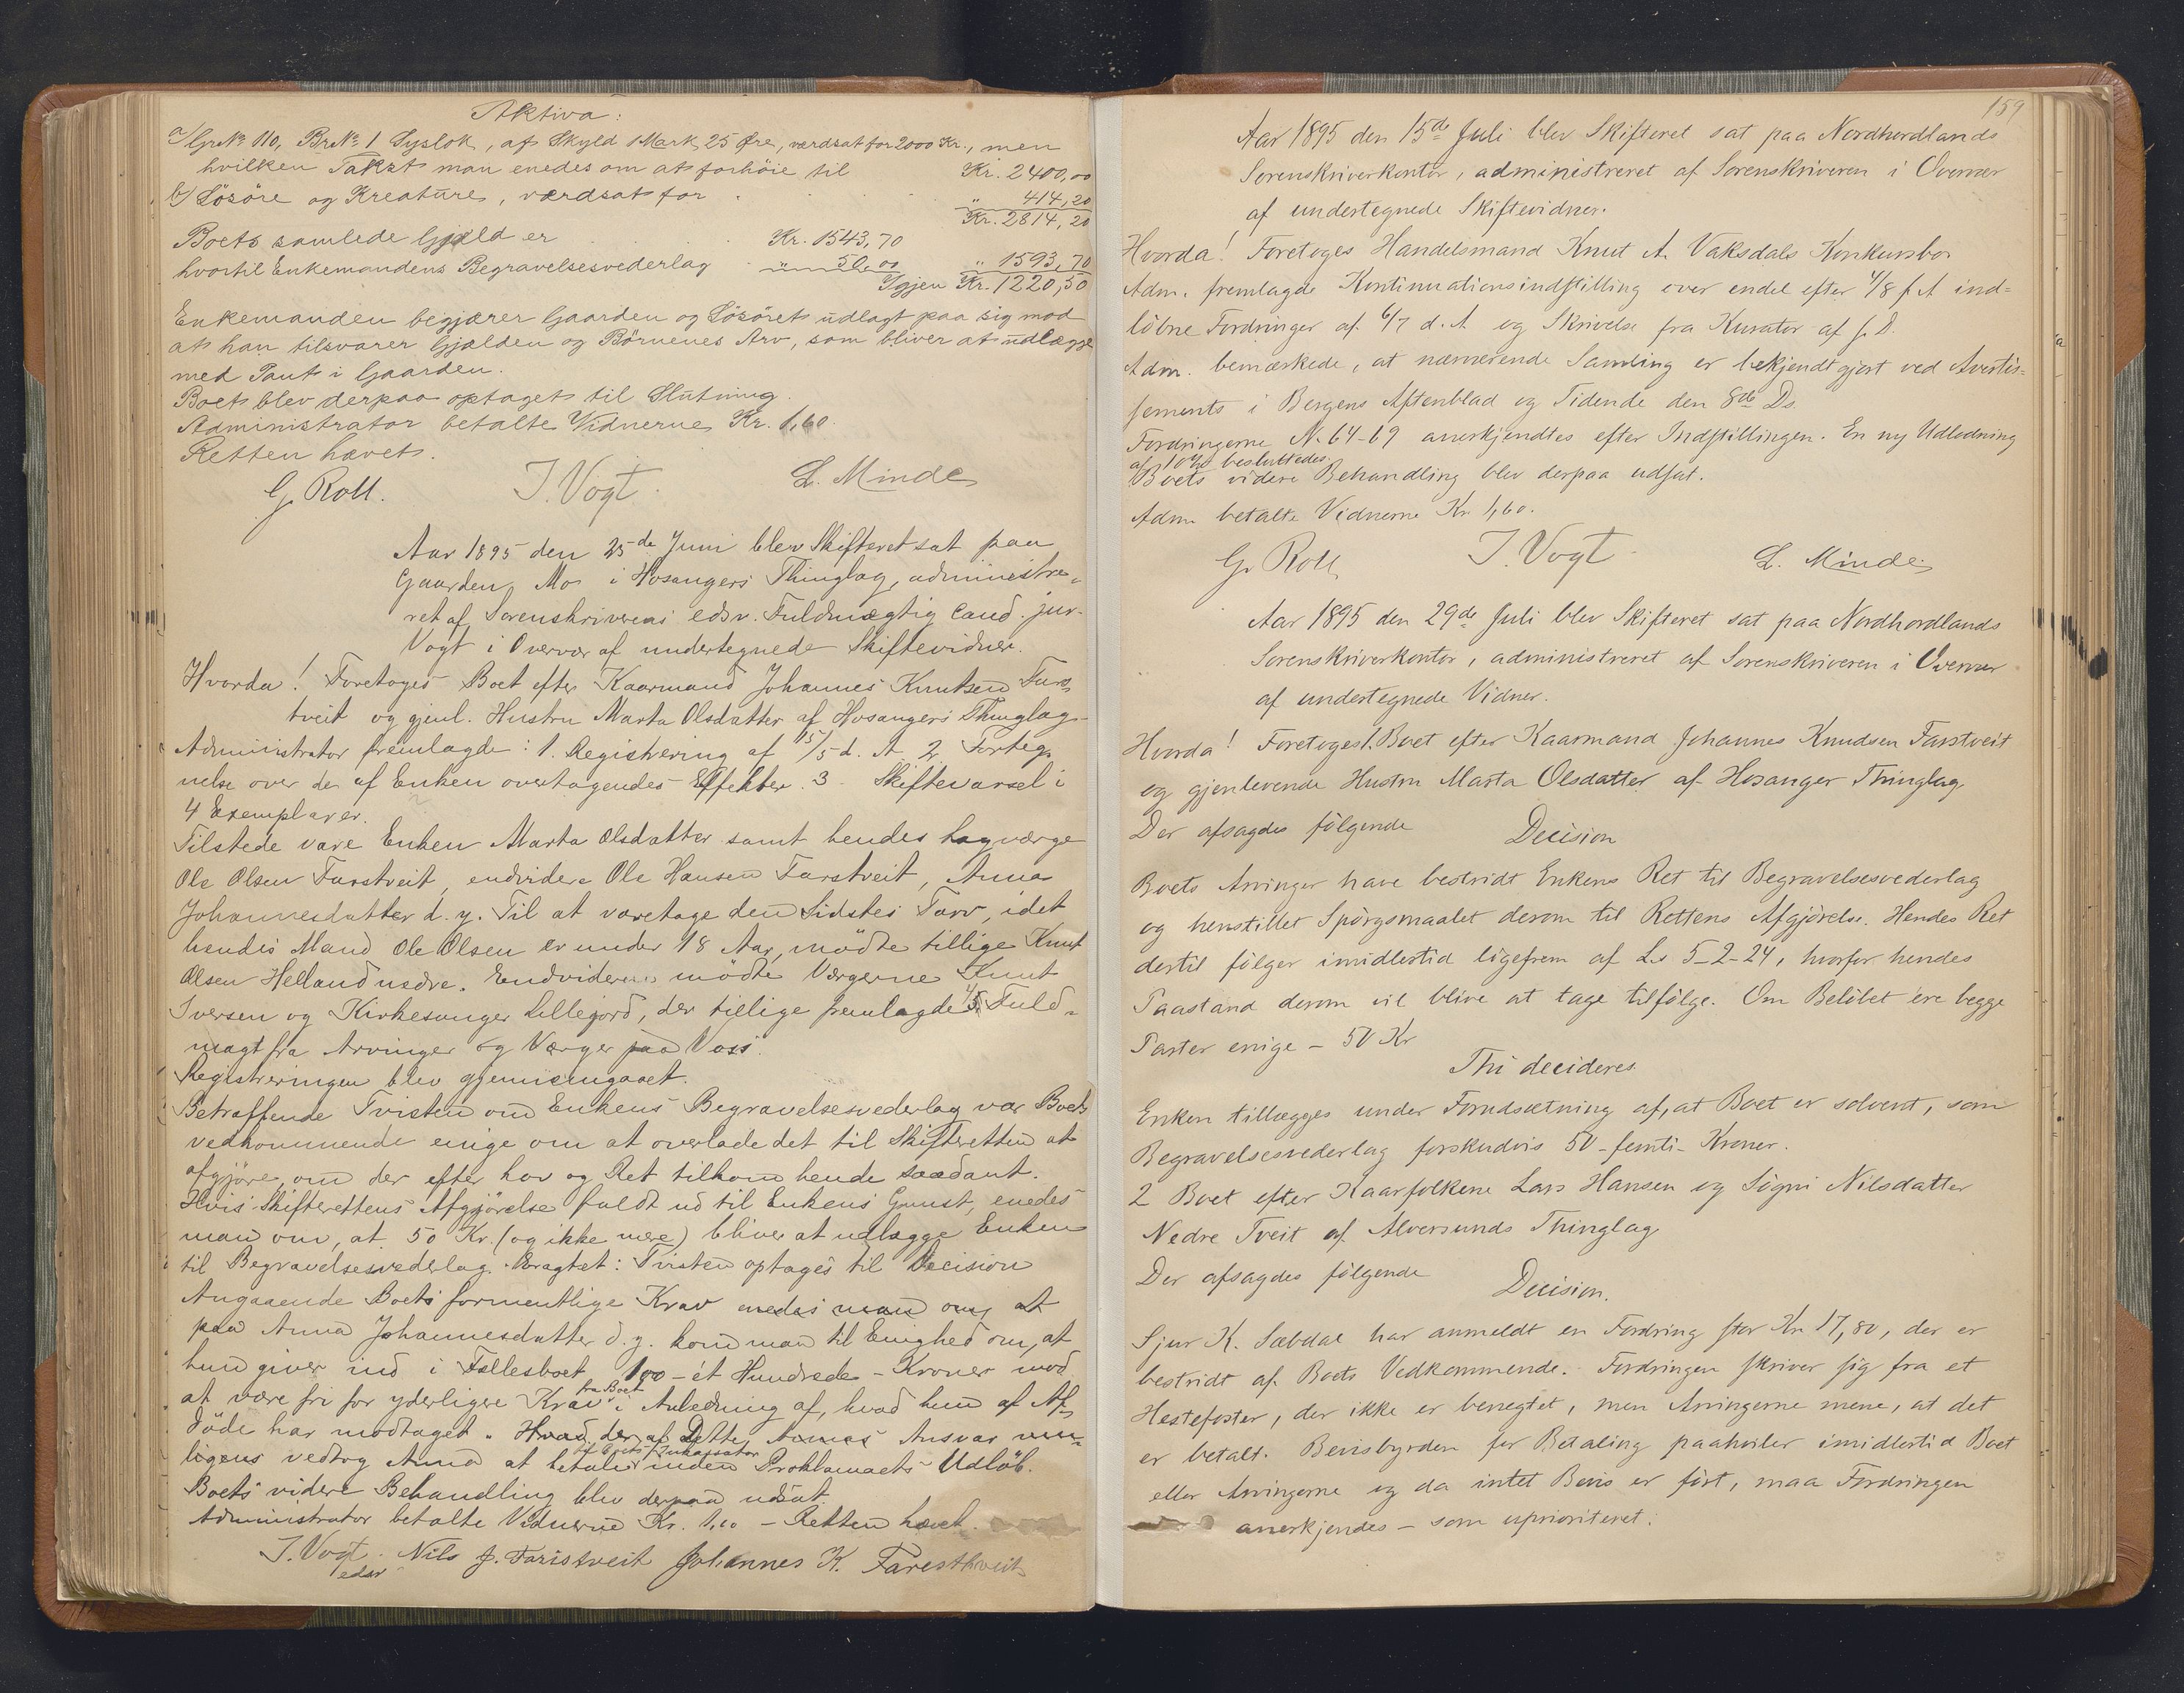 Aktiva:
a/ Gr.No 110, Br.No 1 Syslok, af Skyld 1 Mark 25 Øre, værdsat for 2000 Kr., men
hvilken Takst man enedes om at forhöie til Kr. 2400,00
b/ Lösöre og Kreature, værdsat for " 414,20
Kr. 2814,20
Boets samlede Gjæld er Kr. 1543,70
hvortil Enkemandens Begravelsesvederlag " 50,00 " 1593,70
Igjen Kr. 1220,50
Enkemanden begjærer Gaarden og Lösöret udlagt paa sig mod
at han tilsvarer Gjælden og Börnenes Arv, som bliver at udlægge
med Pant i Gaarden.
Boet blev derpaa optaget til Slutning.
Administrator betalte Vidnerne Kr. 1,60.
Retten hævet.
G. Roll. J. Vogt. L. Minde
Aar 1895 den 25de Juni blev Skifteret sat paa
Gaarden Mo i Hosangers Thinglag, administre-
ret af Sorenskriverens edsv. Fuldmægtig cand. jur.
Vogt i Overvær af undertegnede Skiftevidner.
Hvorda! Foretoges Boet efter Kaarmand Johannes Knutsen Fars-
tveit og gjenl. Hustru Marta Olsdatter af Hosangers Thinglag.
Administrator fremlagde: 1. Registrering af 15/5 d. A. 2. Forteg-
nelse over de af Enken overtagendes Effekter. 3. Skiftevarsel i
4 Exemplarer.
Tilstede vare Enken Marta Olsdatter samt hendes Lagværge
Ole Olsen Farstveit, endvidere Ole Hansen Farstveit, Anna
Johannesdatter d. y. Til at varetage den Sidstes Tarv, idet
hendes Mand Ole Olsen er under 18 Aar, mödte tillige Knut
Olsen Helland nedre. Endvidere mödte Værgerne Knut
Iversen og Kirkesanger Lillejord, der tillige fremlagde 4/5 Fuld-
magt fra Arvinger og Værger paa Voss.
Registreringen blev gjennemgaaet.
Betræffende Tvisten om Enkens Begravelsesvederlag var Boets
vedkommende enige om at overlade det til Skifteretten at
afgjöre, om der efter Lov og Ret tilkom hende saadant.
Hvis Skifterettens Afgjörelse faldt ud til Enkens Gunst, enedes
man om, at 50 Kr. (og ikke mere) bliver at udlægge Enken
til Begravelsesvederlag. Eragtet: Tvisten optages til Decision
Angaaende Boets formentlige Krav enedes man om, at
paa Anna Johannesdatter d. y. kom man til Enighed om, at
hun giver ind i Fællesboet 100 - ét Hundrede - Kroner mod
at være fri for yderligere Krav fra Boet i Anledning af, hvad hun af Af-
döde har modtaget. Hvad der af Dette Annas Ansvar
ligens vedtog Anna at betale til Boets Inkassator inden Proklamaets Udlöb.
Boets videre Behandling blev derpaa udsat.
Administrator betalte Vidnerne Kr. 1,60 - Retten hævet.
J. Vogt. Nils J. Faristveit Johannes K. Faresthveit
edsv
159
Aar 1895 den 15de Juli blev Skifteret sat paa Nordhordlands
Sorenskriverkontor, administreret af Sorenskriveren i Overvær
af undertegnede Skiftevidner.
Hvorda! Foretoges Handelsmand Knut A. Vaksdals Konkursbo.
Adm. fremlagde Kontinuationsindstilling over endel efter 4/8 f. A ind-
löbne Fordringer af 6/7 d. A. og Skrivelse fra Kurator af s. D.
Adm. bemærkede, at nærværende Samling er bekjendtgjort ved Avertis-
sements i Bergens Aftenblad og Tidende den 8de Ds.
Fordringerne N. 64-69 anerkjendtes efter Indstillingen. En ny Udlodning
af 10% besluttedes.
Boets videre Behandling blev derpaa udsat.
Adm. betalte Vidnerne Kr. 1,60.
G. Roll J. Vogt. L. Minde.
Aar 1895 den 29de Juli blev Skifteret sat paa Nordhordlands
Sorenskriverkontor, administreret af Sorenskriveren i Overvær
af undertegnede Vidner.
Hvorda! Foretoges 1. Boet efter Kaarmand Johannes Knudsen Farstveit
og gjenlevende Hustru Marta Olsdatter af Hosanger Thinglag.
Der afsagdes fölgende Decision
Boets Arvinger have bestridt Enkens Ret til Begravelsesvederlag
og henstillet Spörgsmaalet derom til Rettens Afgjörelse. Hendes Ret
dertil fölger imidlertid ligefrem af L. 5-2-24, hvorfor hendes
Paastand derom vil blive at tage tilfölge. Om Belöbet ere begge
Parter enige - 50 Kr
Thi decideres
Enken tillægges under Forudsætning af, at Boet er solvent, som
Begravelsesvederlag forskudvis 50 - femti - Kroner.
2 Boet efter Kaarfolkene Lars Hansen og Signi Nilsdatter
Nedre Tveit af Alversunds Thinglag
Der afsagdes fölgende Decision.
Sjur K. Sæbdal har anmeldt en Fordring stor Kr 17,80, der er
bestridt af Boets Vedkommende. Fordringen skriver sig fra et
Hestefoster, der ikke er benegtet, men Arvingerne mene, at det
er betalt. Bevisbyrden for Betaling paahviler imidlertid Boet
eller Arvingerne og da intet Bevis er fört, maa Fordringen
anerkjendes - som uprioriteret.